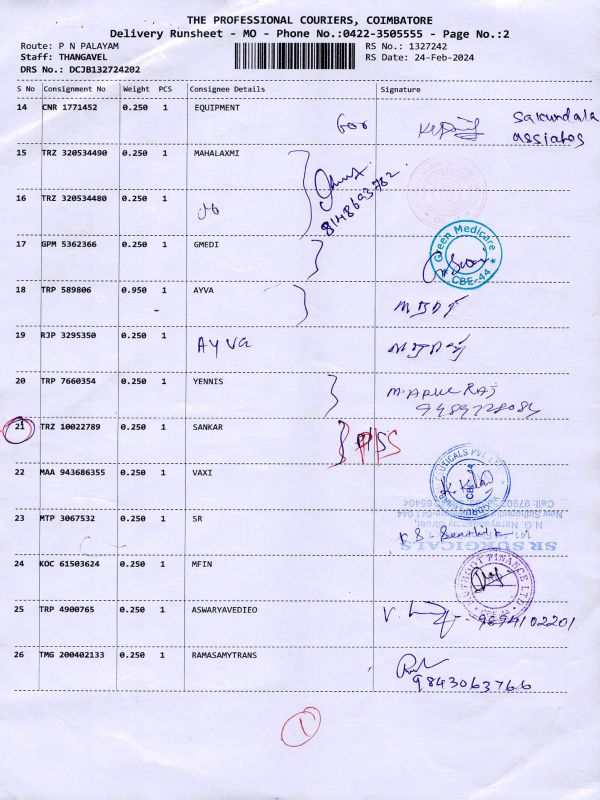 THE PROFESSIONAL COURIERS, COIMBATORE
Delivery Runsheet - MO - Phone No.:0422-3505555 - Page No.:2
Route: P N PALAYAM
RS No.: 1327242
Staff: THANGAVEL
RS Date: 24-Feb-2024
DRS No.: DCJB132724202
S No Consignment No Weight PCS Consignee Details Signature
14 CNR 1771452 0.250 1 EQUIPMENT
for
Sakundala
assiates
15 TRZ 320534490 0.250 1 MAHALAXMI
8148693762
16 TRZ 320534480 0.250 1
17 GPM 5362366 0.250 1 GMEDI
Green Medicare
CBE-44
18 TRP 589806 0.950 1 AYVA
19 RJP 3295350 0.250 1 AYVA
20 TRP 7660354 0.250 1 YENNIS
M. ARUL RAJ
21 TRZ 10022789 0.250 1 SANKAR
22 MAA 943686355 0.250 1 VAXI
CBE-44
23 MTP 3067532 0.250 1 SR
SR SURGICALS
24 KOC 61503624 0.250 1 MFIN
FINANCE LTD
CBE-44
25 TRP 4900765 0.250 1 ASWARYAVEDIEO
9894102201
26 TMG 200402133 0.250 1 RAMASAMYTRANS
9843063766
1